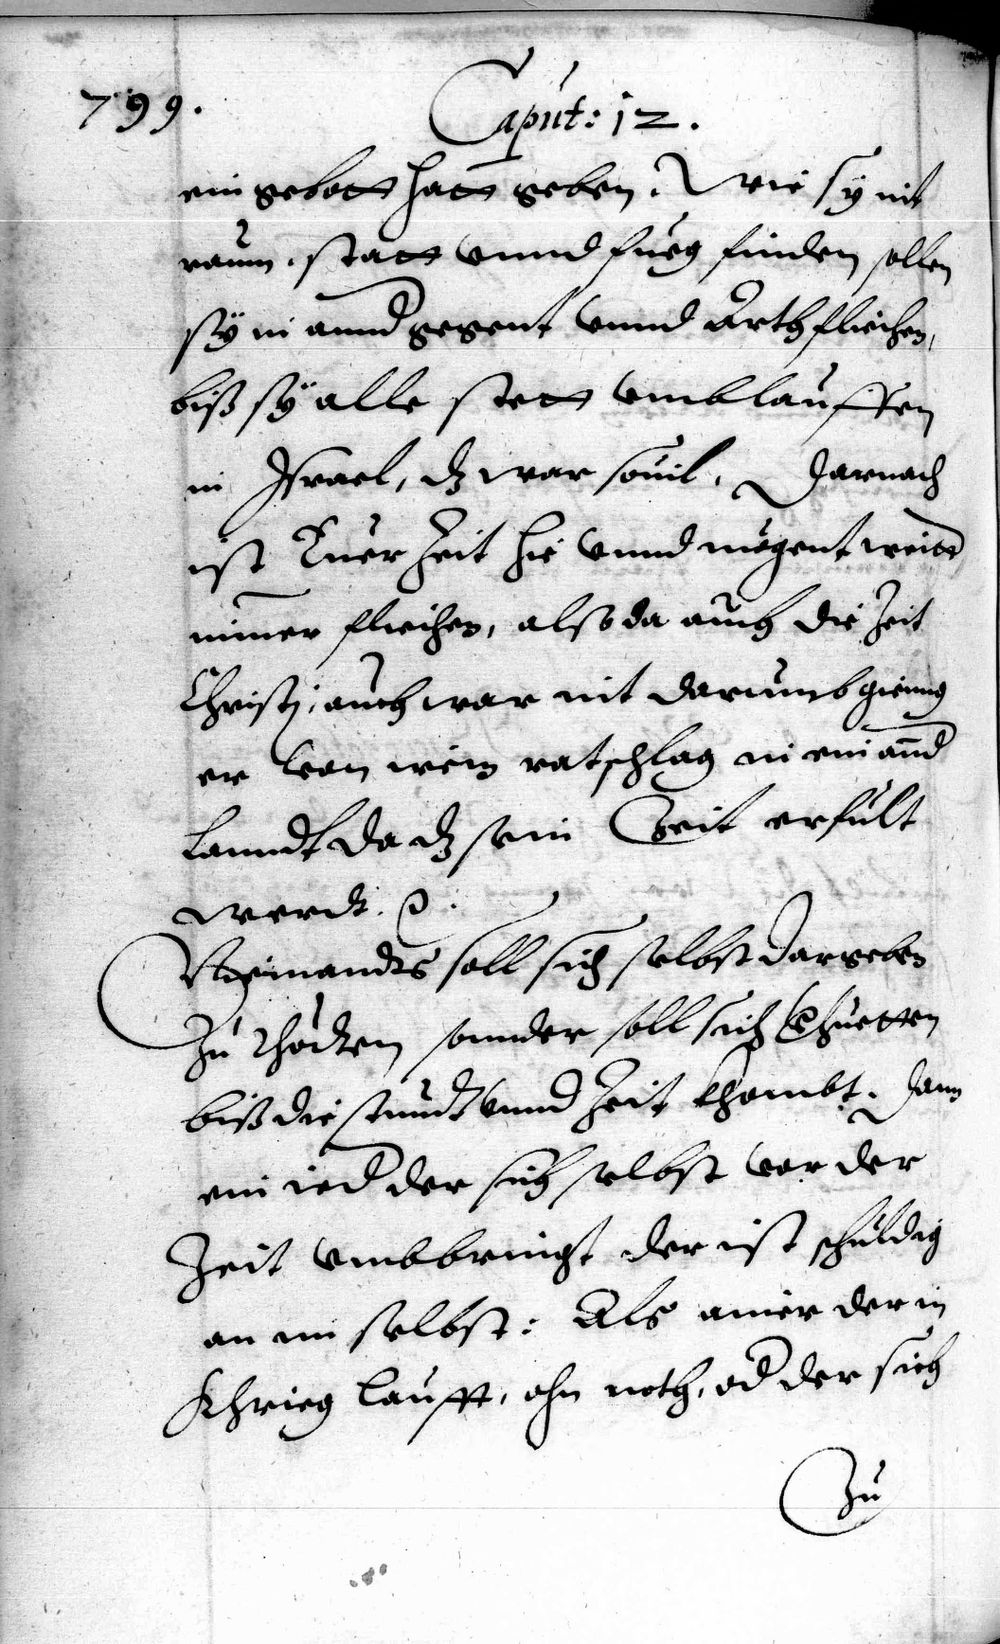 799.
Caput: 12.
ein gebott hatt geben. Wie sÿ nit
raum, statt vnnd fueg finden sollen
sÿ in annd gegent vnnd Orth fliehen,
biß sÿ alle stett vmblauffen
in Israel, dz war souil. Darnach
ist Euer Zeit hie vnnd mögent weitt
nimer fliehen, also da auch die Zeit
Christj, auch war nit darumb gieng
er von irem ratschlag in ein annd
Lanndt da dz sein Zeit erfült
werdt.
Niemandts soll sich selbst dargeben
Zu thödten sonnder soll sich Ehretten
biß die stundt vnnd Zeit khombt. Dann
ein ied der sich selbst vor der
Zeit vmbbringt der ist schuldig
an im selbst: Als ainer der in
Khrieg laufft, ohn noth, od der sich
Zu